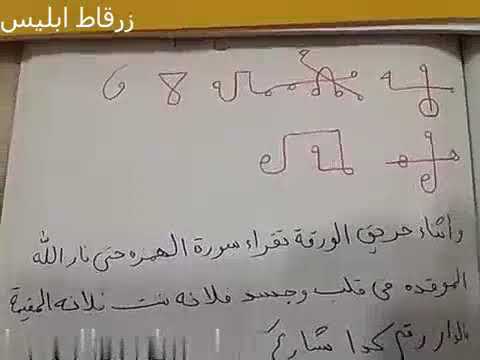 زرقاط ابليس
وأثناء حريق الورقة تقراء سورة الهمزه حتى نار الله
الموقده في قلب وجسد فلانه بنت فلانه المقيمة
بالدار رقم كذا شارع كذا